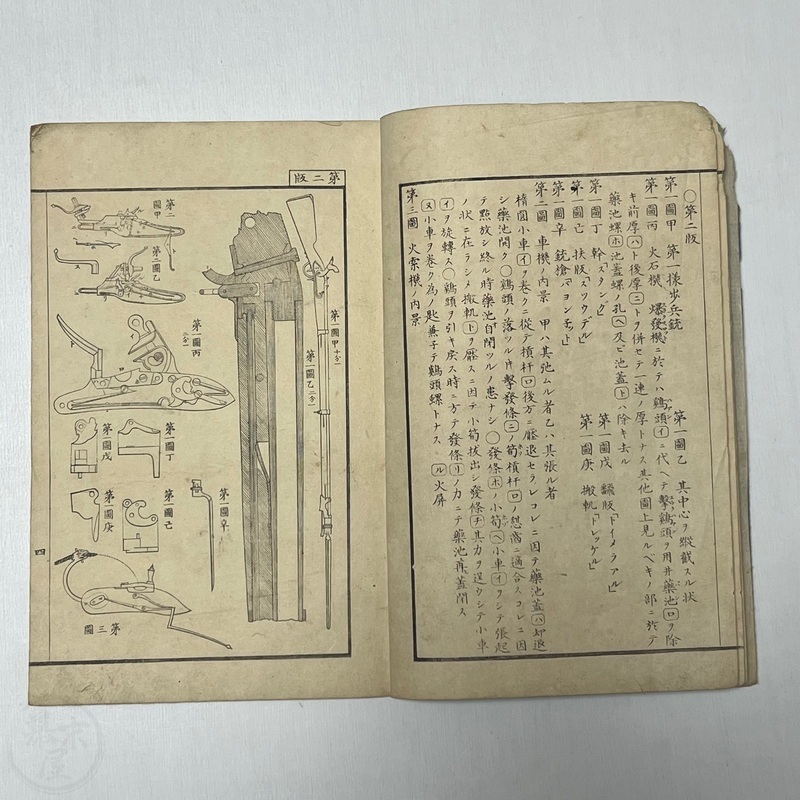 〇第二版
第一圖甲 第一樣步兵銃 第一圖乙 其中心ヲ縱截スル狀
第一圖丙 火石機 爆發機ニ於テハ鷄頭イニ代ヘテ擊鷄頭ヲ用井藥池ロヲ除
キ前厚ハト後厚ニトヲ併セテ一連ノ厚トナス其他圖上見ルベキノ部ニ於テ
藥池螺ホ池蓋螺ノ孔ヘ及ビ池蓋トハ除キ去ル
第一圖丁 幹「スタング」 第一圖戊 飜肢「トイメラアル」
第一圖己 扶肢「スツウデル」 第一圖庚 搬軌「トレッケル」
第一圖辛 銃槍「バヨンネット」
第二圖 車機ノ内景 甲ハ其弛ムル者乙ハ其張ル者
橢圓小車イヲ卷クニ從テ槓杆ロ後方ニ壓退セラレコレニ因テ藥池蓋ハ却退
シ藥池開ク〇鷄頭ノ落ツル片擊發條ニノ筍槓杆ロノ
テ點放シ終ル時藥池自閉ツルノ患ナシ〇發條ホノ小筍ヘ小車イヲシテ張起
ノ狀ニ在ラシメ搬軌トヲ壓スニ因テ小筍拔出シ發條チ其力ヲ逞ウシテ小車
イヲ旋轉ス〇鷄頭ヲ引キ戻ス時ニ方テ發條リノ力ニテ藥池再蓋閉ス
ヌ小車ヲ卷ク為ノ匙兼子テ鷄頭螺トナス ル火屏
第三圖 火索機ノ内景
第二版
第一圖甲 十分一
第一圖乙 二分一
第二圖甲
第二圖乙
第一圖丙 二分一
第一圖丁
第一圖戊
第一圖己
第一圖庚
第一圖辛
第三圖
四